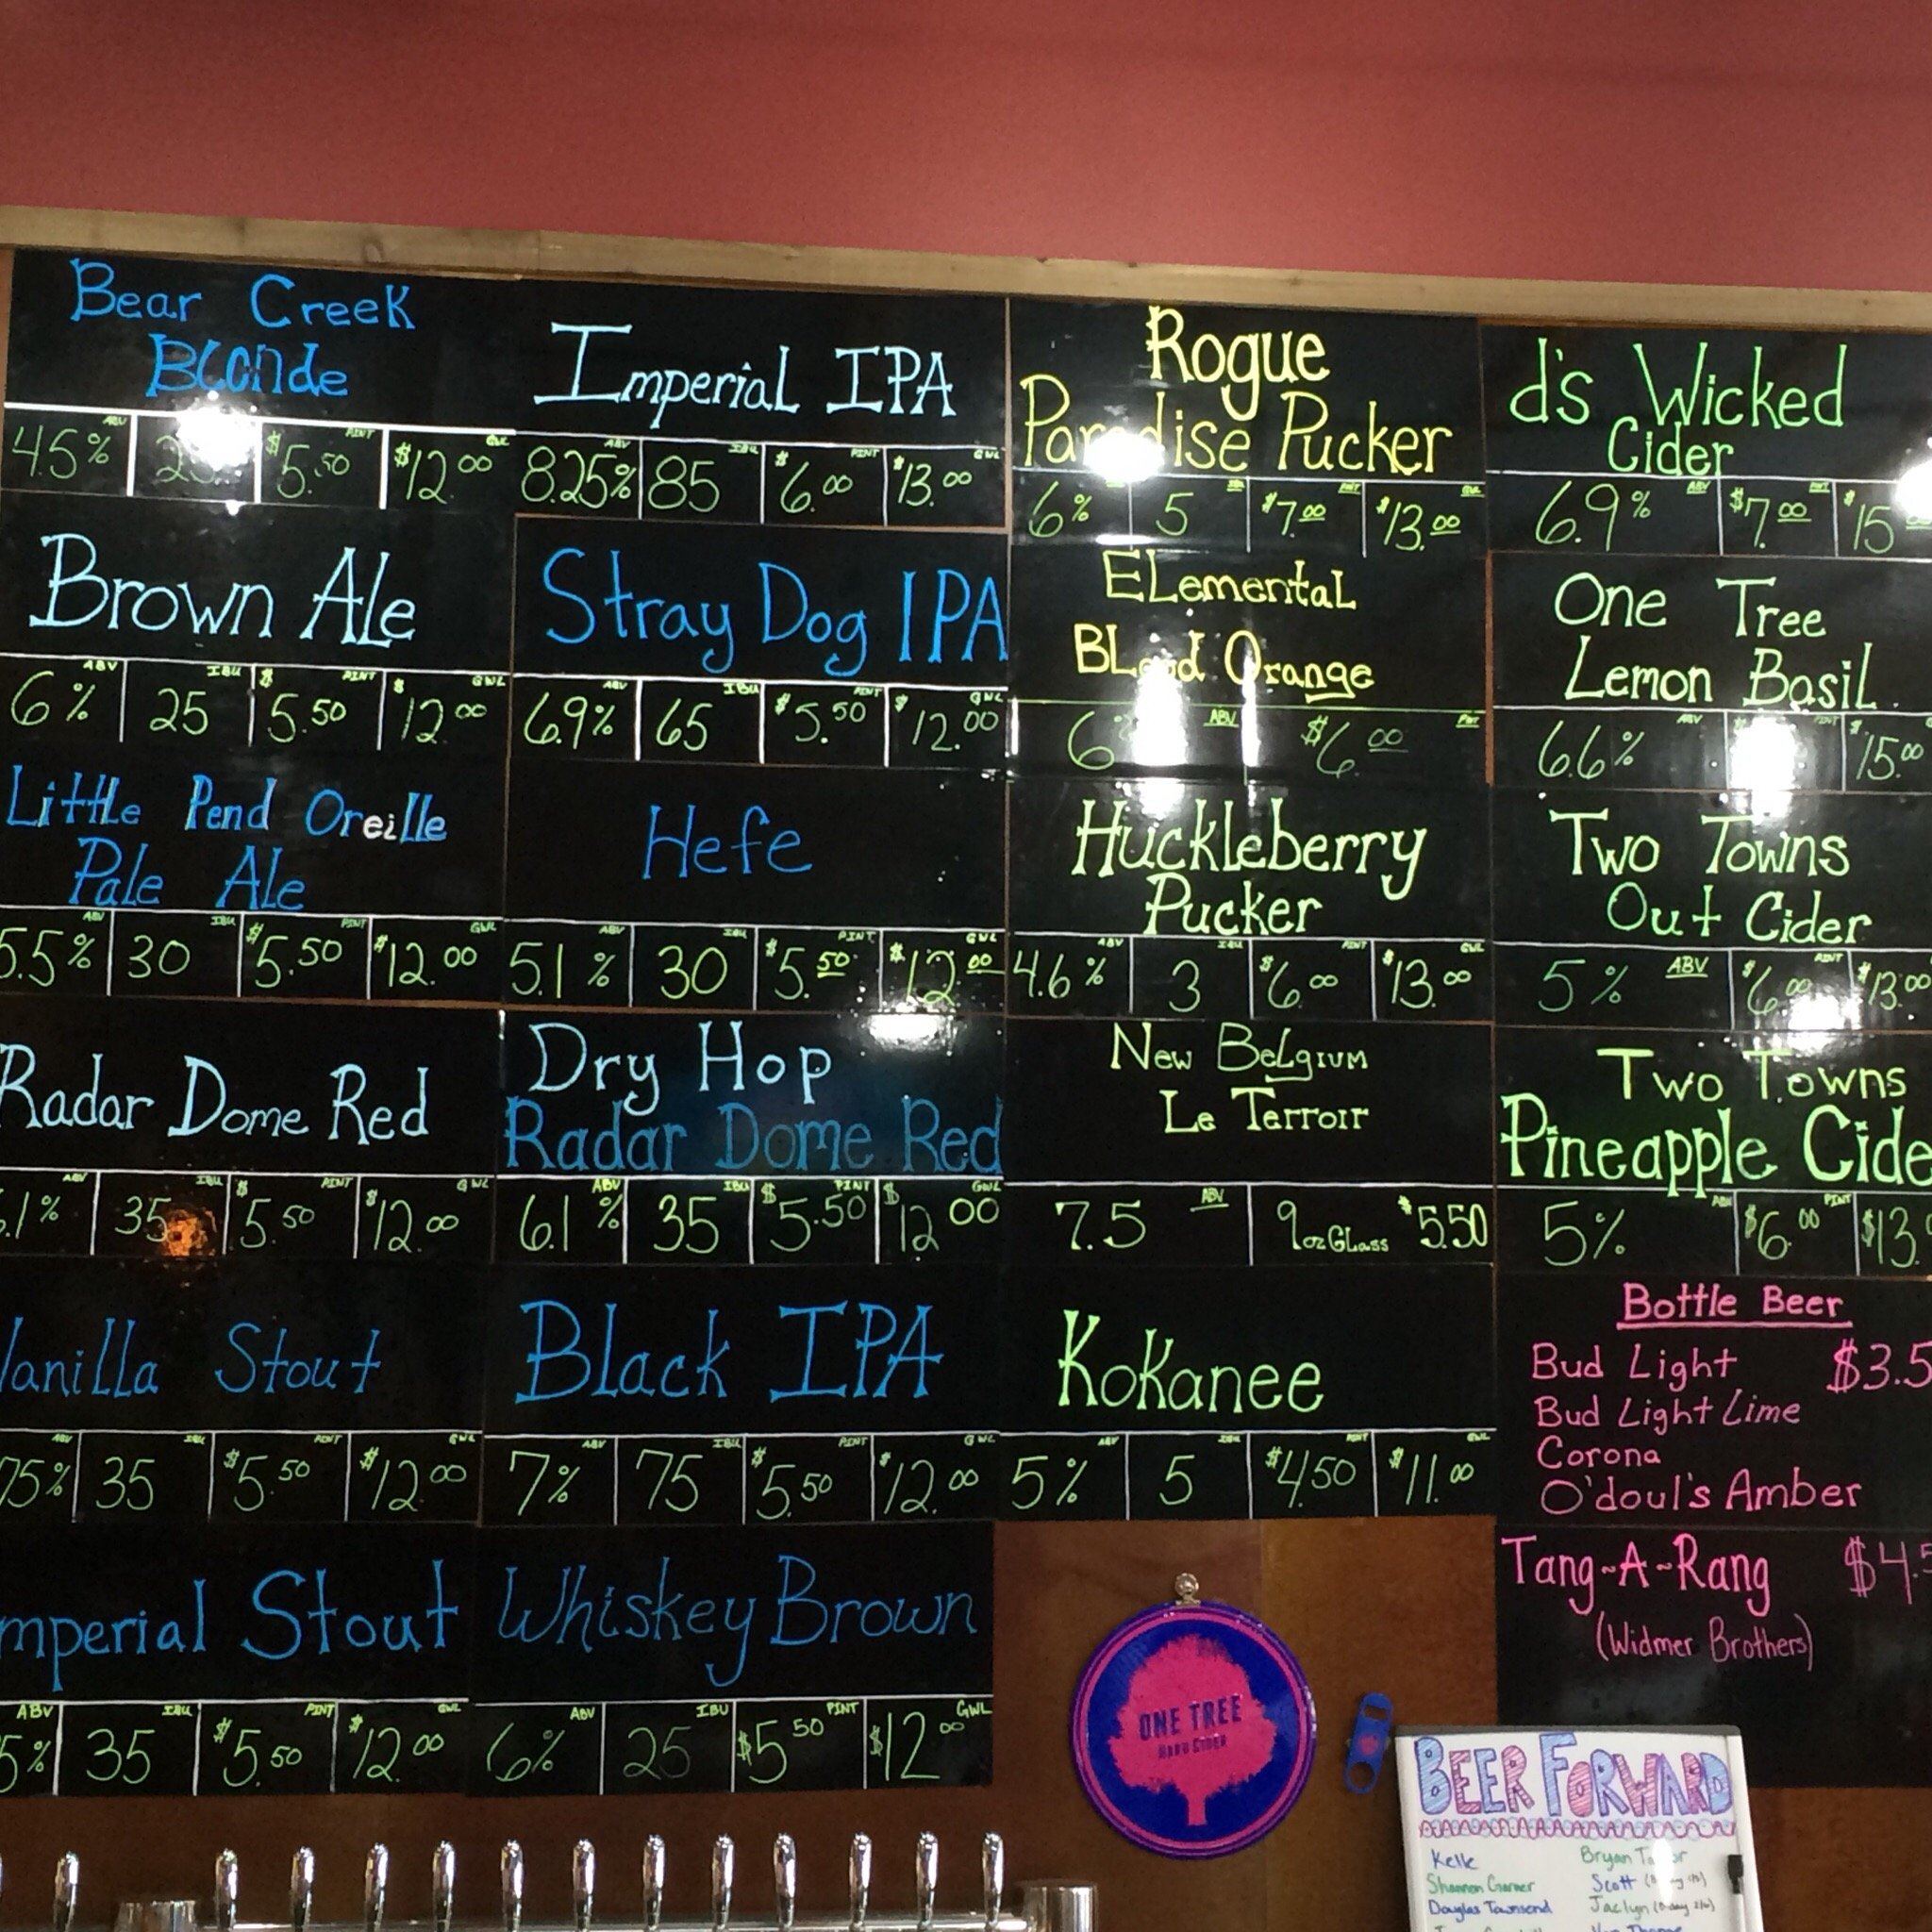 Bear Creek
Blonde
ABV IBU PINT GWL
4.5% $5.50 $12.00
Brown Ale
ABV IBU PINT GWL
6% 25 $5.50 $12.00
Little Pend Oreille
Pale Ale
ABV IBU PINT GWL
5.5% 30 $5.50 $12.00
Radar Dome Red
ABV IBU PINT GWL
.1% 35 $5.50 $12.00
Vanilla Stout
ABV IBU PINT GWL
75% 35 $5.50 $12.00
mperial Stout
ABV IBU PINT GWL
5% 35 $5.50 $12.00
Imperial IPA
ABV IBU PINT GWL
8.25% 85 $6.00 $13.00
Stray Dog IPA
ABV IBU PINT GWL
6.9% 65 $5.50 $12.00
Hefe
ABV IBU PINT GWL
5.1% 30 $5.50 $12.00
Dry Hop
Radar Dome Red
ABV IBU PINT GWL
6.1% 35 $5.50 $12.00
Black IPA
ABV IBU PINT GWL
7% 75 $5.50 $12.00
Whiskey Brown
ABV IBU PINT GWL
6% 25 $5.50 $12.00
Rogue
Paradise Pucker
IBU PINT GWL
6% 5 $7.00 $13.00
Elemental
Blood Orange
6% ABV $6.00 PINT
Huckleberry
Pucker
ABV IBU PINT GWL
4.6% 3 $6.00 $13.00
New Belgium
Le Terroir
7.5 ABV 9oz Glass $5.50
Kokanee
ABV IBU PINT GWL
5% 5 $4.50 $11.00
d's Wicked
Cider
ABV PINT
6.9% $7.00 $15
One Tree
Lemon Basil
ABV PINT
6.6% $15.00
Two Towns
Out Cider
ABV PINT
5% $6.00 $13.00
Two Towns
Pineapple Cide
ABV PINT
5% $6.00 $13.
Bottle Beer
Bud Light $3.5
Bud Light Lime
Corona
O'doul's Amber
Tang-A-Rang $4.5
(Widmer Brothers)
ONE TREE
HARD CIDER
BEER FORWARD
Kelle
Shannon Garner
Douglas Townsend
Bryan
Scott
Jaclyn